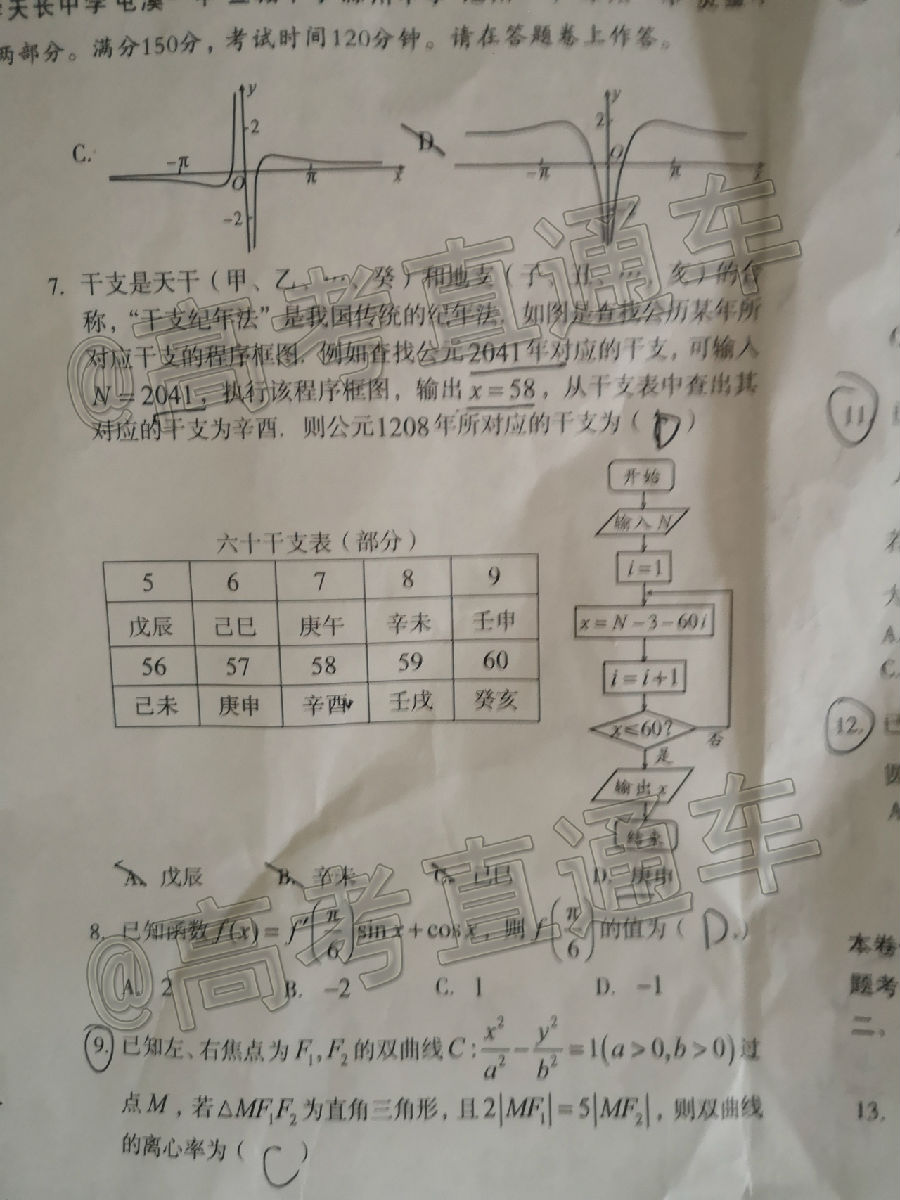 天长中学
两部分。满分150分，考试时间120分钟。请在答题卷上作答。
C.
y
2
-π
O
π
x
-2
D.
y
2
-π
O
π
x
7. 干支是天干（甲、乙、…、癸）和地支（子、丑、…、亥）的合
称，“干支纪年法”是我国传统的纪年法. 如图是查找公历某年所
对应干支的程序框图. 例如查找公元2041年对应的干支，可输入
N=2041，执行该程序框图，输出x=58，从干支表中查出其
对应的干支为辛酉. 则公元1208年所对应的干支为（ D ）
六十干支表（部分）
5 6 7 8 9
戊辰 己巳 庚午 辛未 壬申
56 57 58 59 60
己未 庚申 辛酉 壬戌 癸亥
开始
输入N
i=1
x=N-3-60i
i=i+1
x≤60?
否
是
输出x
结束
A. 戊辰 B. 辛未 C. 己巳 D. 庚申
8. 已知函数f(x)=f′(π/6)sin x+cos x，则f(π/6)的值为（ D ）
A. 2 B. -2 C. 1 D. -1
9. 已知左、右焦点为F₁,F₂的双曲线C:x²/a²-y²/b²=1(a>0,b>0)过
点M，若△MF₁F₂为直角三角形，且2|MF₁|=5|MF₂|，则双曲线
的离心率为（ C ）
@高考直通车
@高考直通车
11
12.
本卷
题考
二、
13.